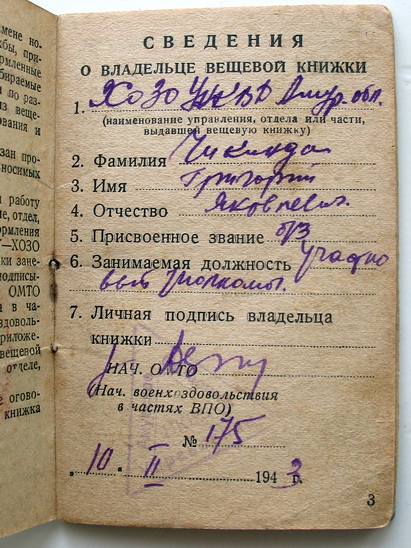 мене но-
жбы, при-
ормленные
бираемые
по раз-
из веще-
ования и
зан про-
носимых
работу
ие, отдел,
ормления
У—ХОЗО
ки зане-
подписы-
ОМТО
я в ча-
здоволь-
риложе-
вещевой
отделе,
е огово-
книжка
СВЕДЕНИЯ
О ВЛАДЕЛЬЦЕ ВЕЩЕВОЙ КНИЖКИ
1. ХОЗО УНКВД Амур. обл.
(наименование управления, отдела или части,
выдавшей вещевую книжку)
2. Фамилия
3. Имя Григорий
4. Отчество Яковлевич
5. Присвоенное звание б/з
6. Занимаемая должность участко
вый уполном.
7. Личная подпись владельца
книжки
НАЧ. ОМТО
(Нач. военхоздовольствия
в частях ВПО)
№ 175
„10 " II 1943 г.
3